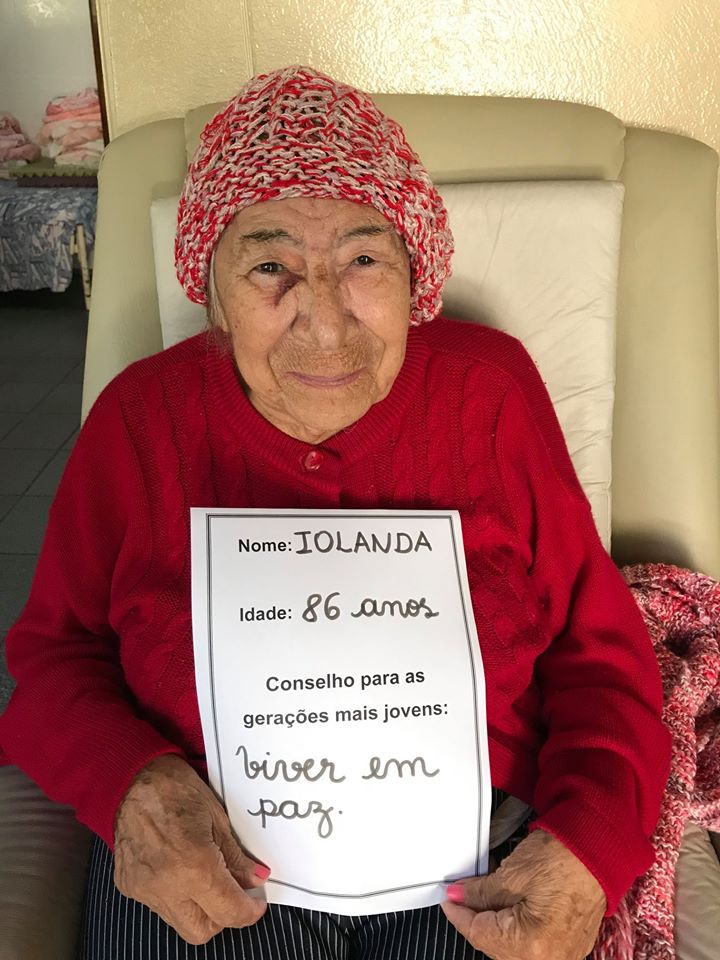 Nome: IOLANDA
Idade: 86 anos
Conselho para as
gerações mais jovens:
Viver em
paz.